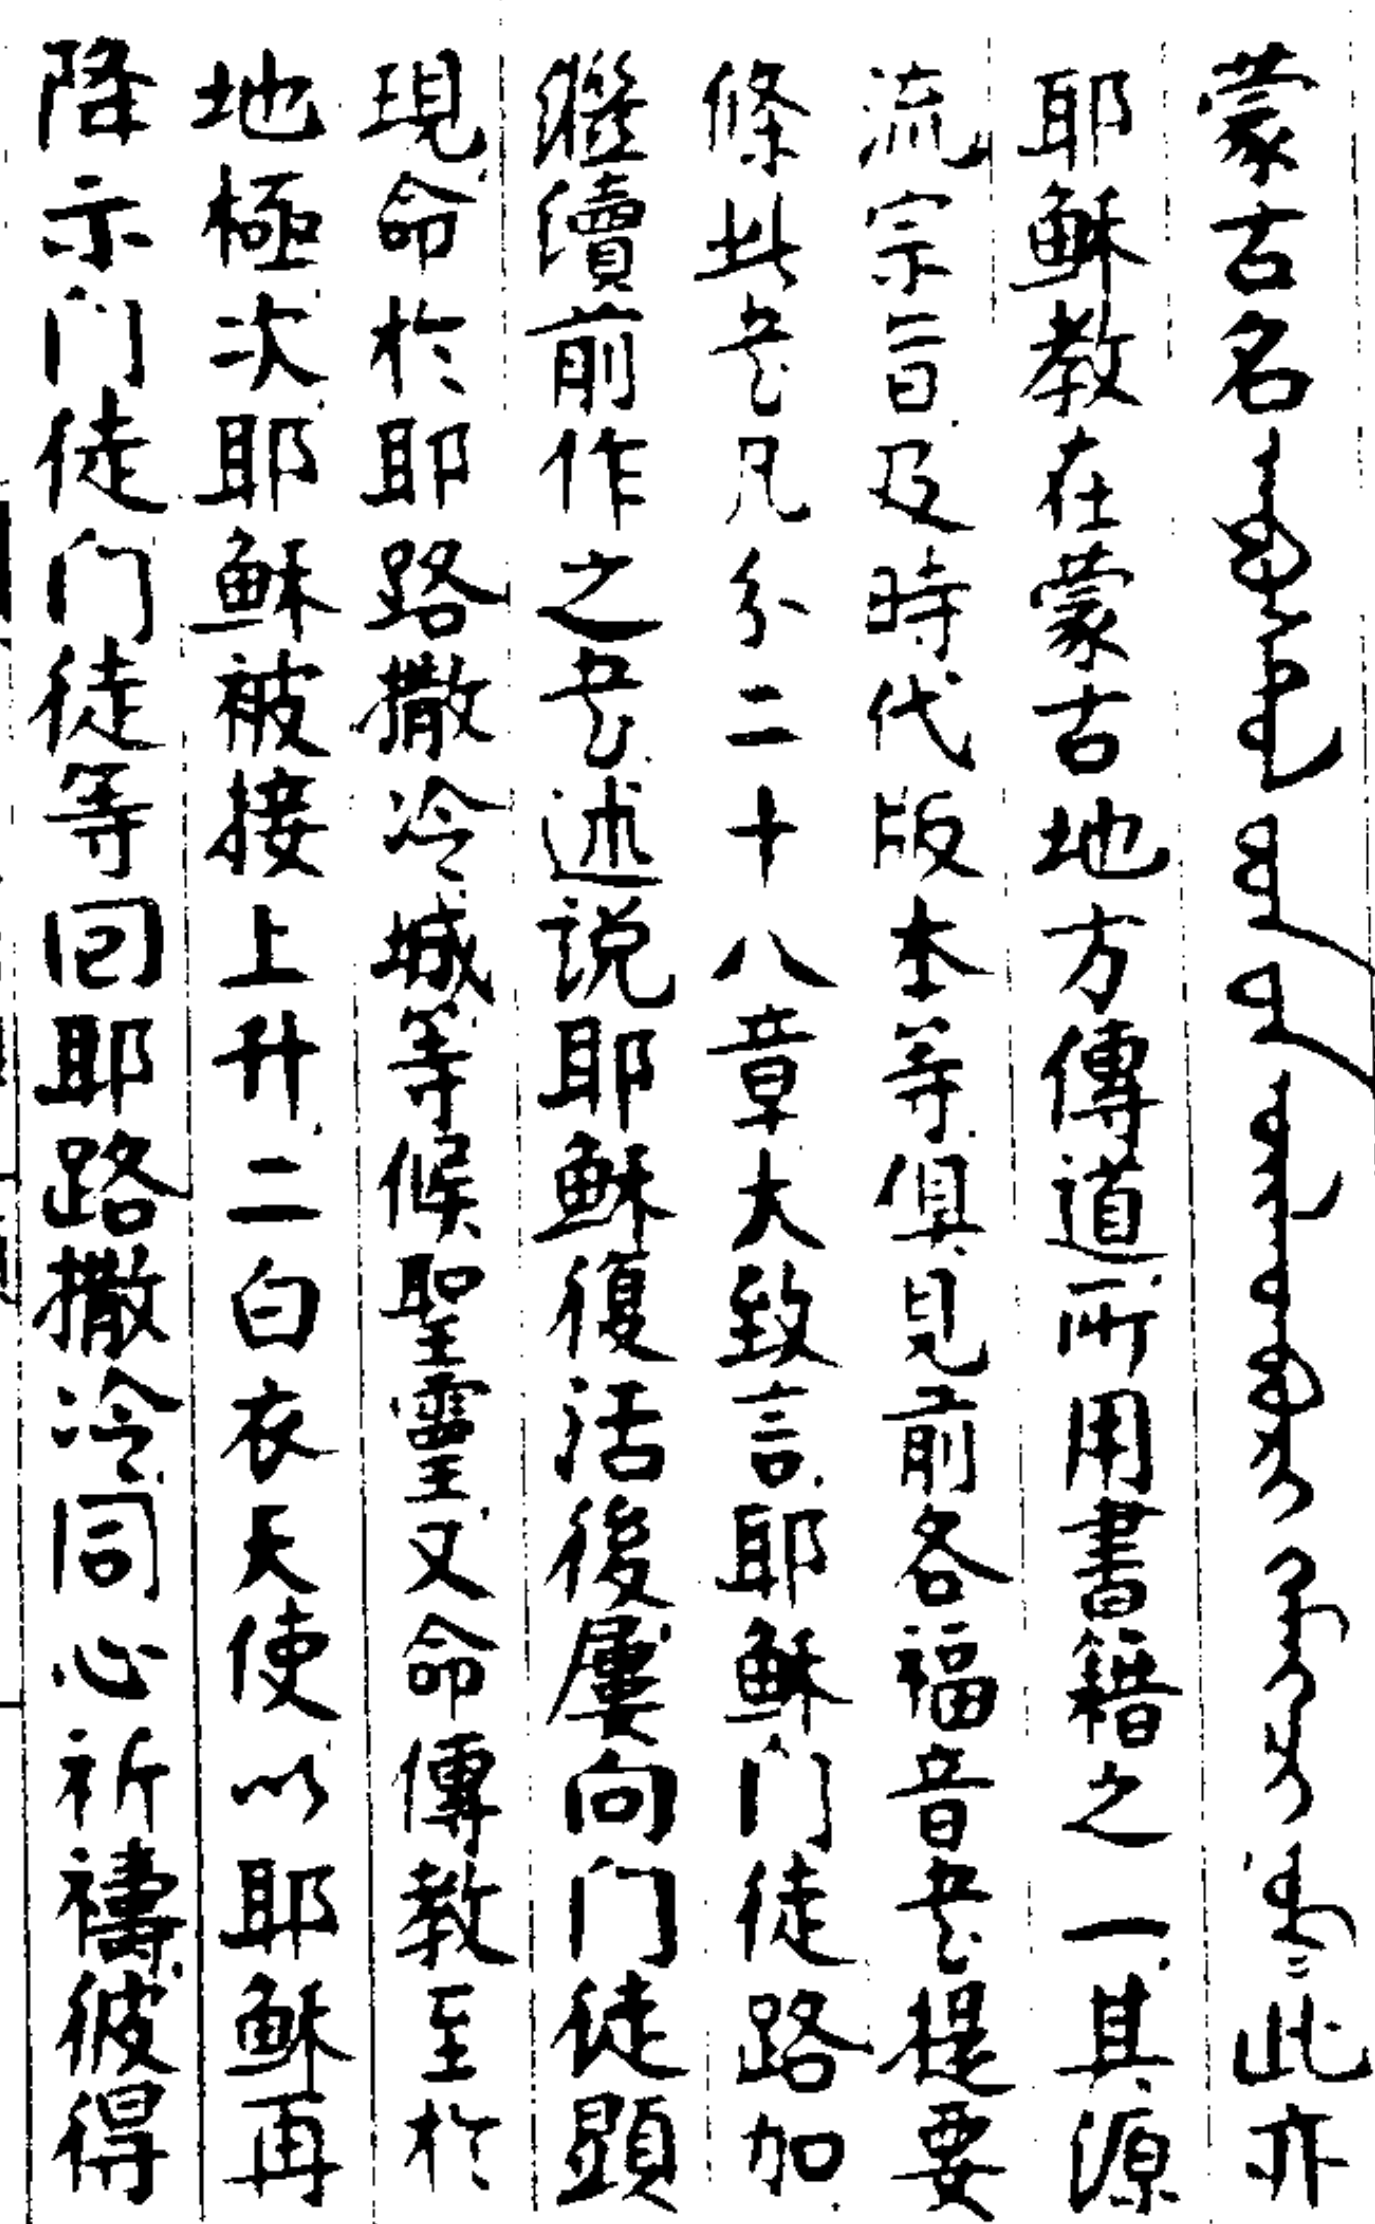 蒙古名 此亦
耶穌教在蒙古地方傳道所用書籍之一其源
流宗旨及時代版本等俱見前各福音书提要
條此书凡分二十八章大致言耶穌門徒路加
繼續前作之书述説耶穌復活後屢向門徒顕
現命於耶路撒冷城等候聖靈又命傳教至於
地極次耶穌被接上升二白衣天使以耶穌再
降示門徒門徒等回耶路撒冷同心祈禱彼得